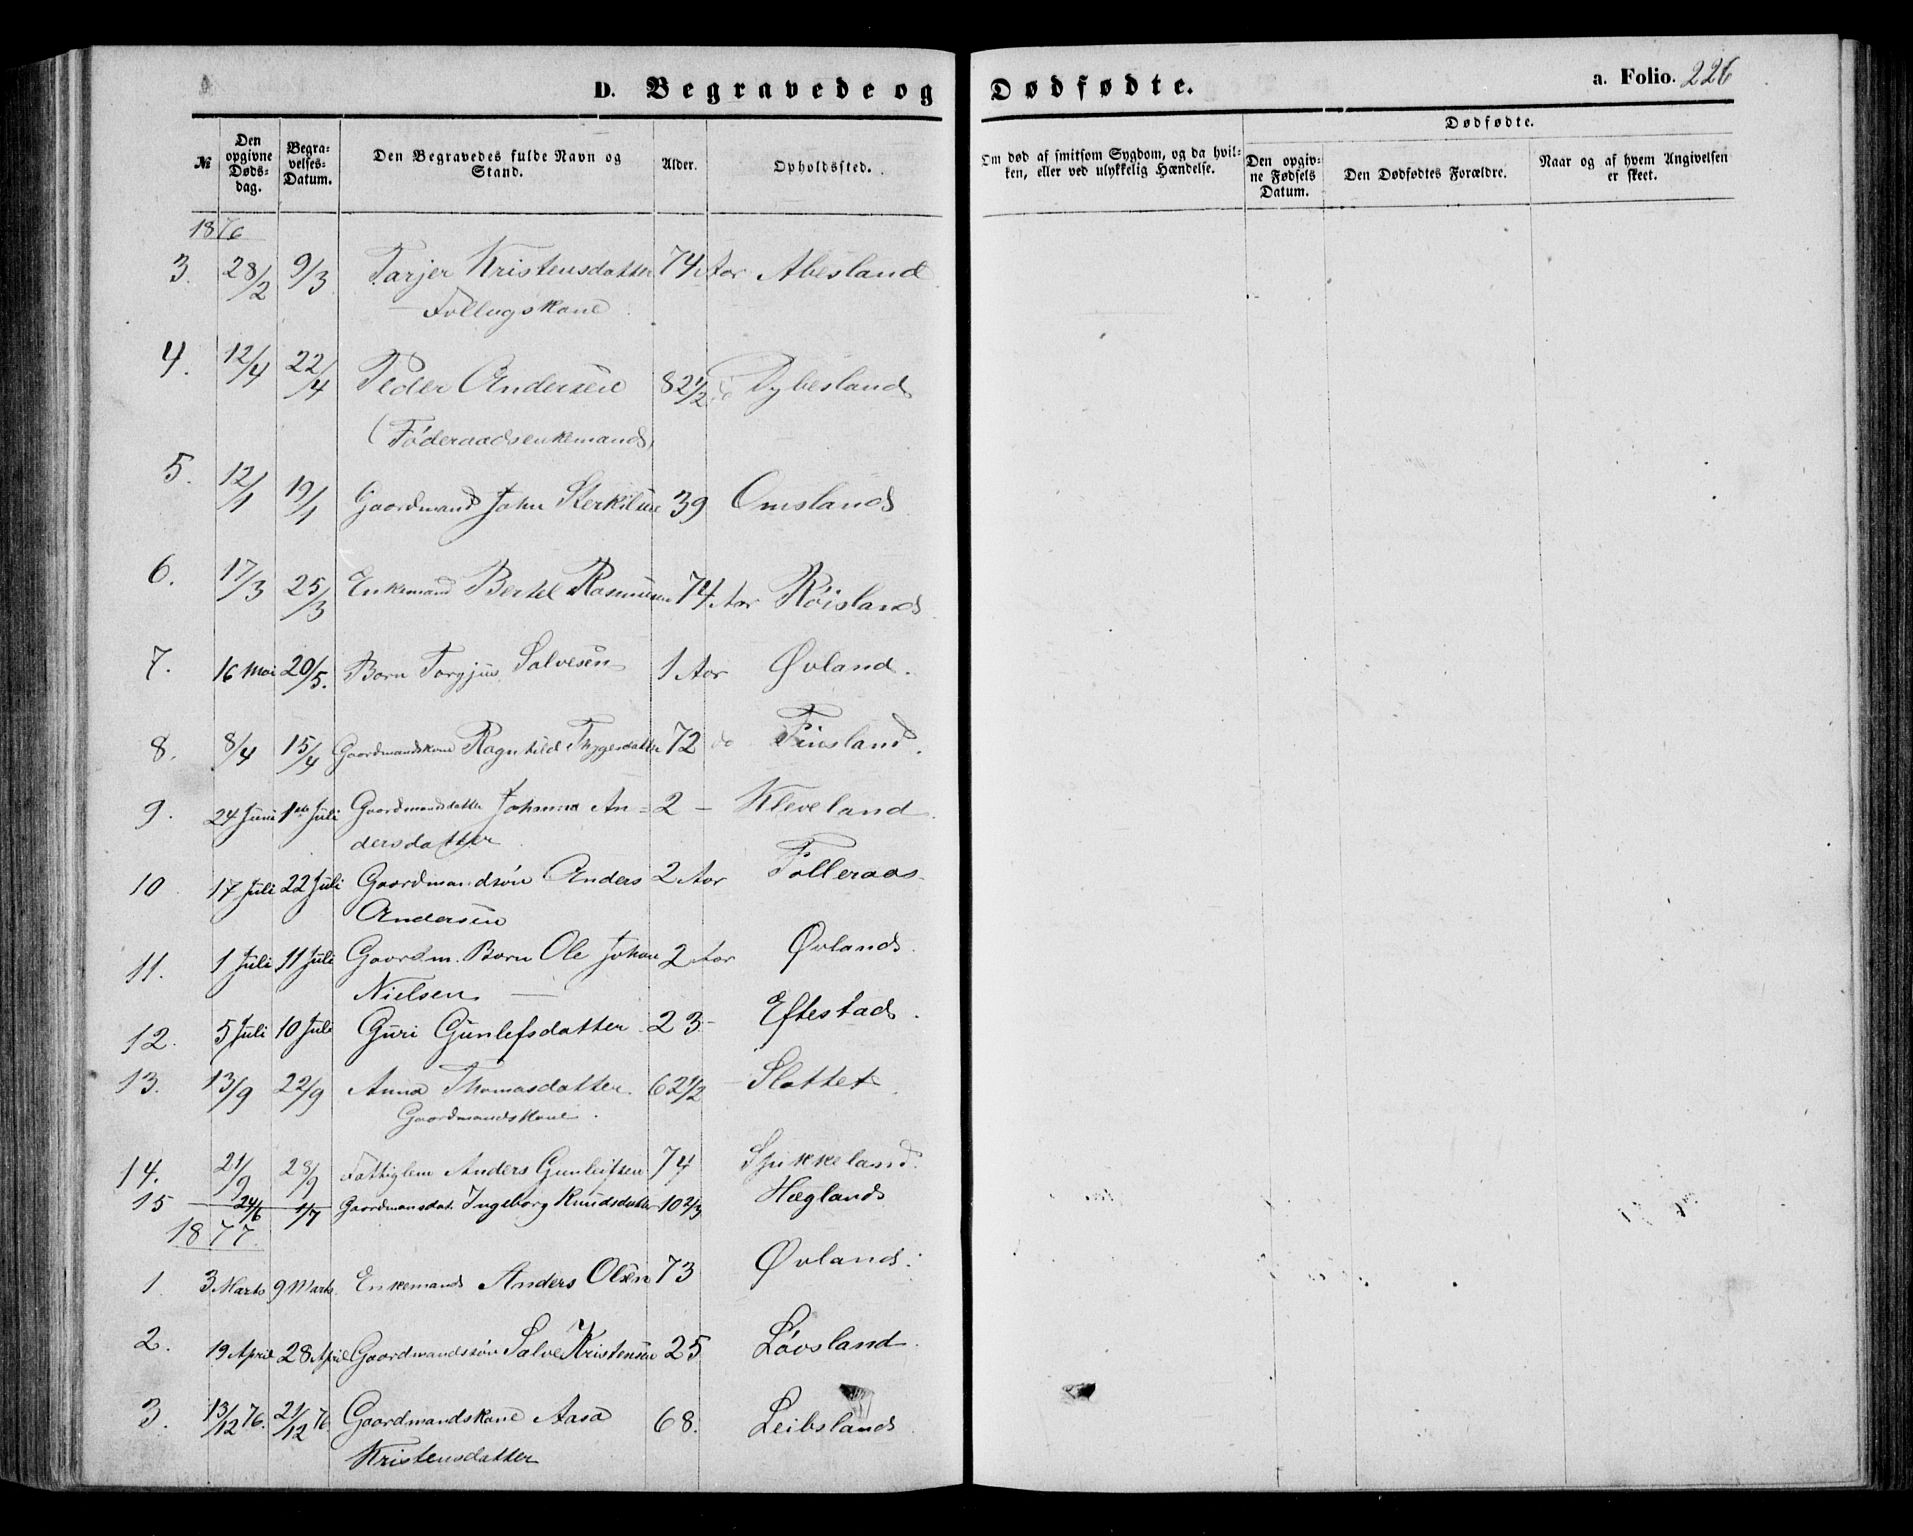 D. Begravede og Dødfødte.
a. Folio. 226
№
Den opgivne Døds-dag.
Begra-velses-Datum.
Den Begravedes fulde Navn og Stand.
Alder.
Opholdssted.
Om død af smitsom Sygdom, og da hvil-ken, eller ved ulykkelig Hændelse.
Dødfødte.
Den opgiv-ne Fødsels Datum.
Den Dødfødtes Forældre.
Naar og af hvem Angivelsen er skeet.
1876
3. 28/2 9/3 Tarjer Kristensdatter 74 Aar Abesland
Follugskone
4. 12/4 22/4 Peder Andersen 82 1/2 do Dybesland
(Føderaadsenkemand)
5. 12/1 19/1 Gaardmand John Sterkilsen 39 Omsland
6. 17/3 25/3 Enkemand Bertel Rasmusen 74 Aar Røisland
7. 16 Mai 20/5. Barn Torgjus Salvesen 1 Aar Øvland.
8. 8/4 15/4 Gaardmandskone Ragnhild Thygesdatter 72 do Finsland.
9. 24 Juni 1ste Juli Gaardmandsdatter Johanna An- 2 – Kleveland.
dersdatter
10 17 Juli 22 Juli Gaardmandsøn Anders 2 Aar Folleraas
Andersen
11. 1 Juli 11 Juli Gaardm. Barn Ole Johan 2 Aar Øvland.
Nielsen
12. 5 Juli 10 Juli Guri Gunlefsdatter 23 – Eftestad.
13. 13/9 22/9 Anna Thomasdatter 62 1/2 – Slottet.
Gaardmandskone.
14. 21/9 28/9 Fattiglem Anders Gunleifsen 74 Spikkeland.
15 24/6 1/7 Gaardmansdat. Ingeborg Knudsdatter 10 2/3 Hægland
1877.
1. 3 Marts 9 Marts. Enkemand Anders Olsen 73 Øvland.
2. 19 April 28 April Gaardmandsøn Salve Kristensen 25 Løvsland.
3. 13/12 76. 21/12 76. Gaardmandskone Aasa 68. Leibsland
Kristensdatter